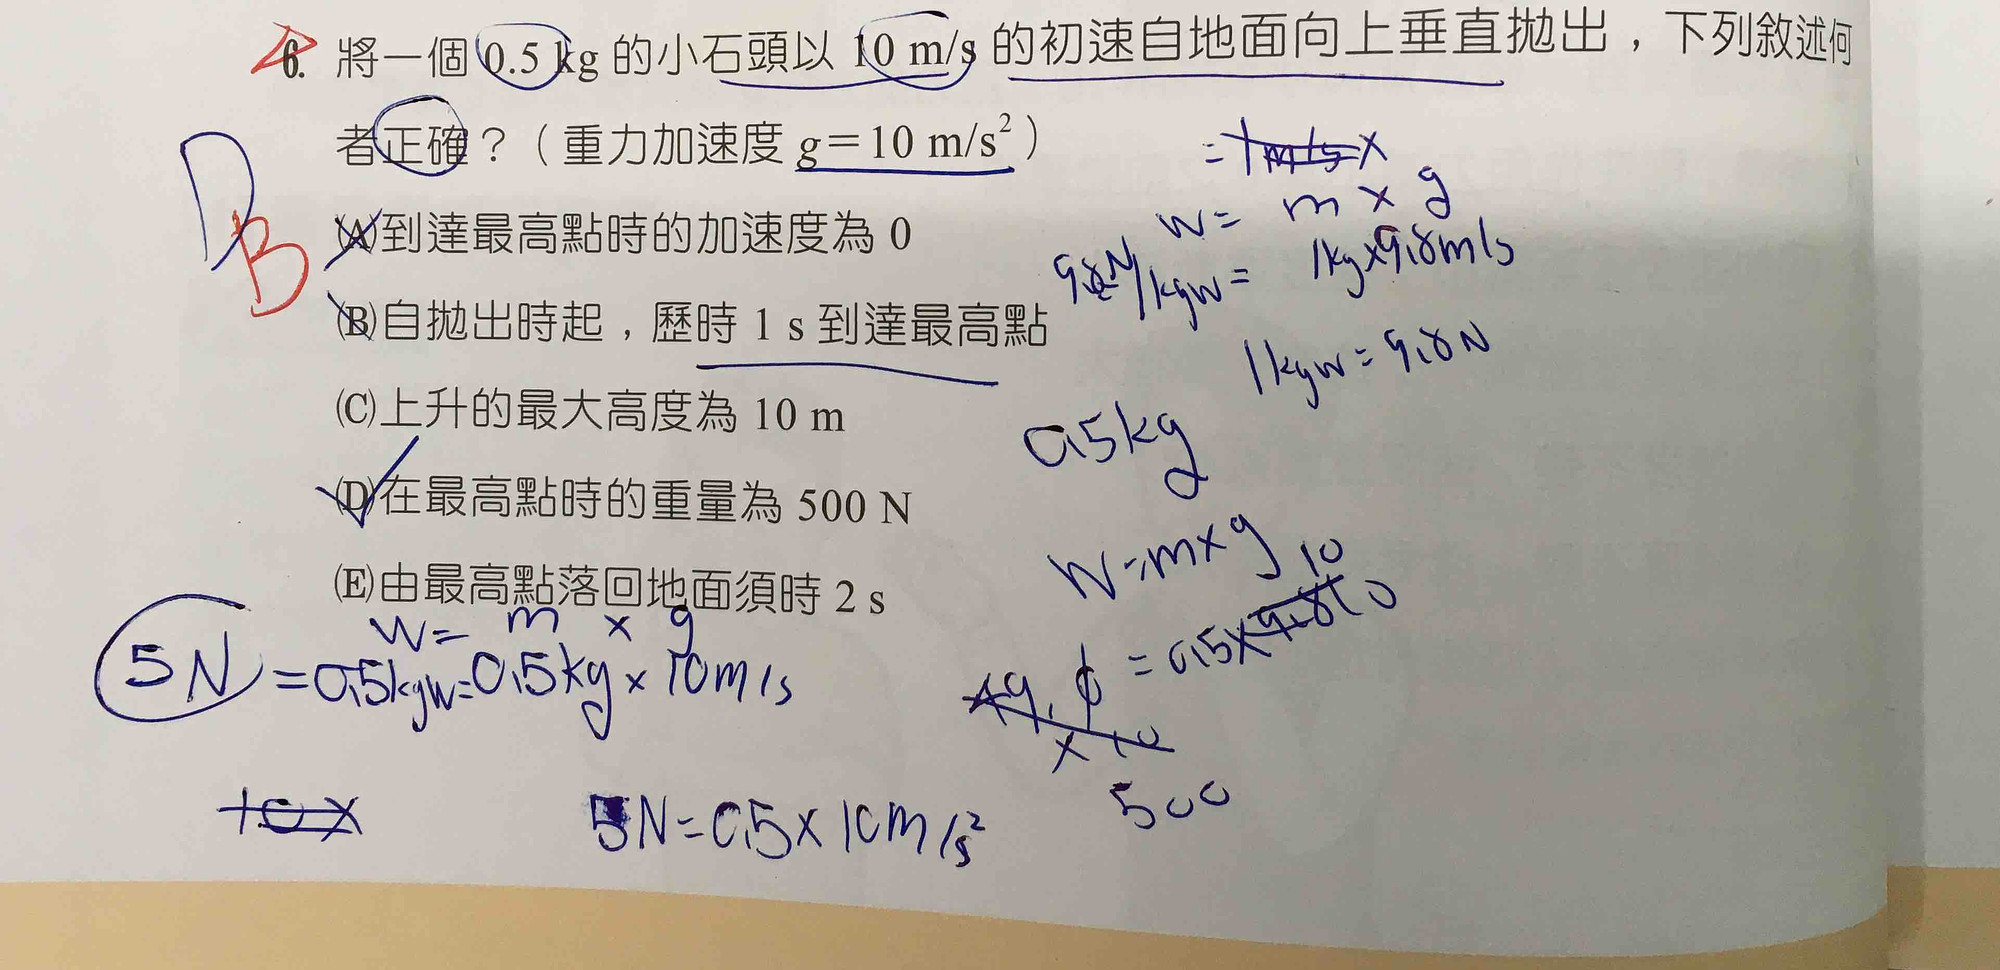 6. 將一個 0.5 kg 的小石頭以 10 m/s 的初速自地面向上垂直拋出，下列敘述何
者正確？（重力加速度 g＝10 m/s²）
D
B
(A)到達最高點時的加速度為 0
(B)自拋出時起，歷時 1 s 到達最高點
(C)上升的最大高度為 10 m
(D)在最高點時的重量為 500 N
(E)由最高點落回地面須時 2 s
W= m x g
5N =0.5kgw=0.5kg x 10m/s
10 x
5N=0.5x10m/s²
=1m/s x
W= m x g
9.8N/kgw= 1kgx9.8m/s
1kgw=9.8N
0.5kg
W=mxg
10
=0.5x9.8 10
x 10
500